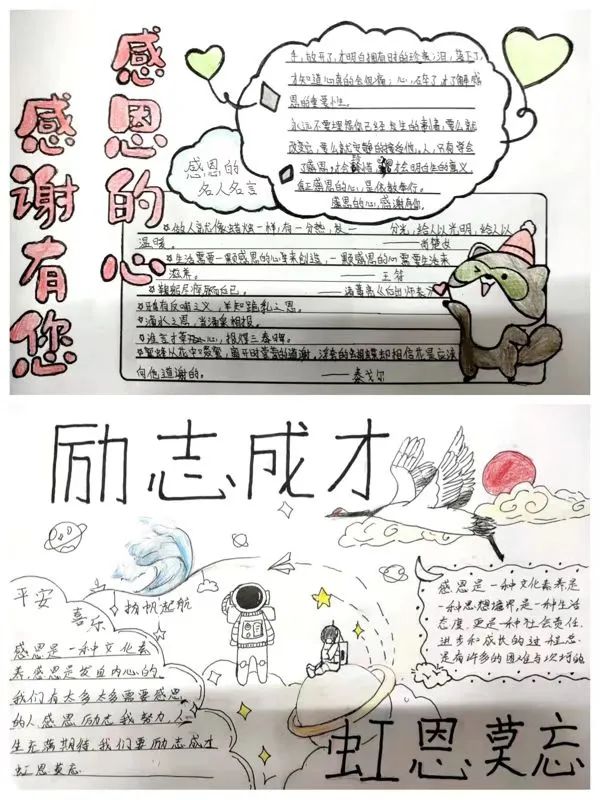 感恩的心
感谢有您
手,放开了,才明白拥有时的珍贵;泪,落下了,
才知道心真的会很痛;心,碎了,才了解感
恩的重要性。
永远不要埋怨你已经发生的事情,要么就
改变它,要么就安静的接受他,人,只有学会
了感恩,才会
才会明白生的意义。
真正感恩的心,是依教奉行。
感恩的心,感谢有你。
感恩的
名人名言
做人就像蜡烛一样,有一分热,发一分光,给人以光明,给人以
温暖。——肖楚女
生活需要一颗感恩的心来创造,一颗感恩的心需要生活来
滋养。——王符
鞠躬尽瘁,死而后已。——诸葛亮《后出师表》
鸦有反哺之义,羊知跪乳之恩。
滴水之恩,当涌泉相报。
谁言寸草心,报得三春晖。
蜜蜂从花中啜蜜,离开时营营的道谢,浮夸的蝴蝶却相信花是应该
向他道谢的。——泰戈尔
励志成才
平安
喜乐
扬帆起航
感恩是一种文化素
养,感恩是发自内心的。
我们有太多太多需要感恩
的人,感恩励志,我努力,人
生充满期待,我们要励志成才
虹恩莫忘
感恩是一种文化素养,是
一种思想境界,是一种生活
态度,更是一种社会责任,
进步和成长的过程总
是有许多的困难与坎坷的
虹恩莫忘